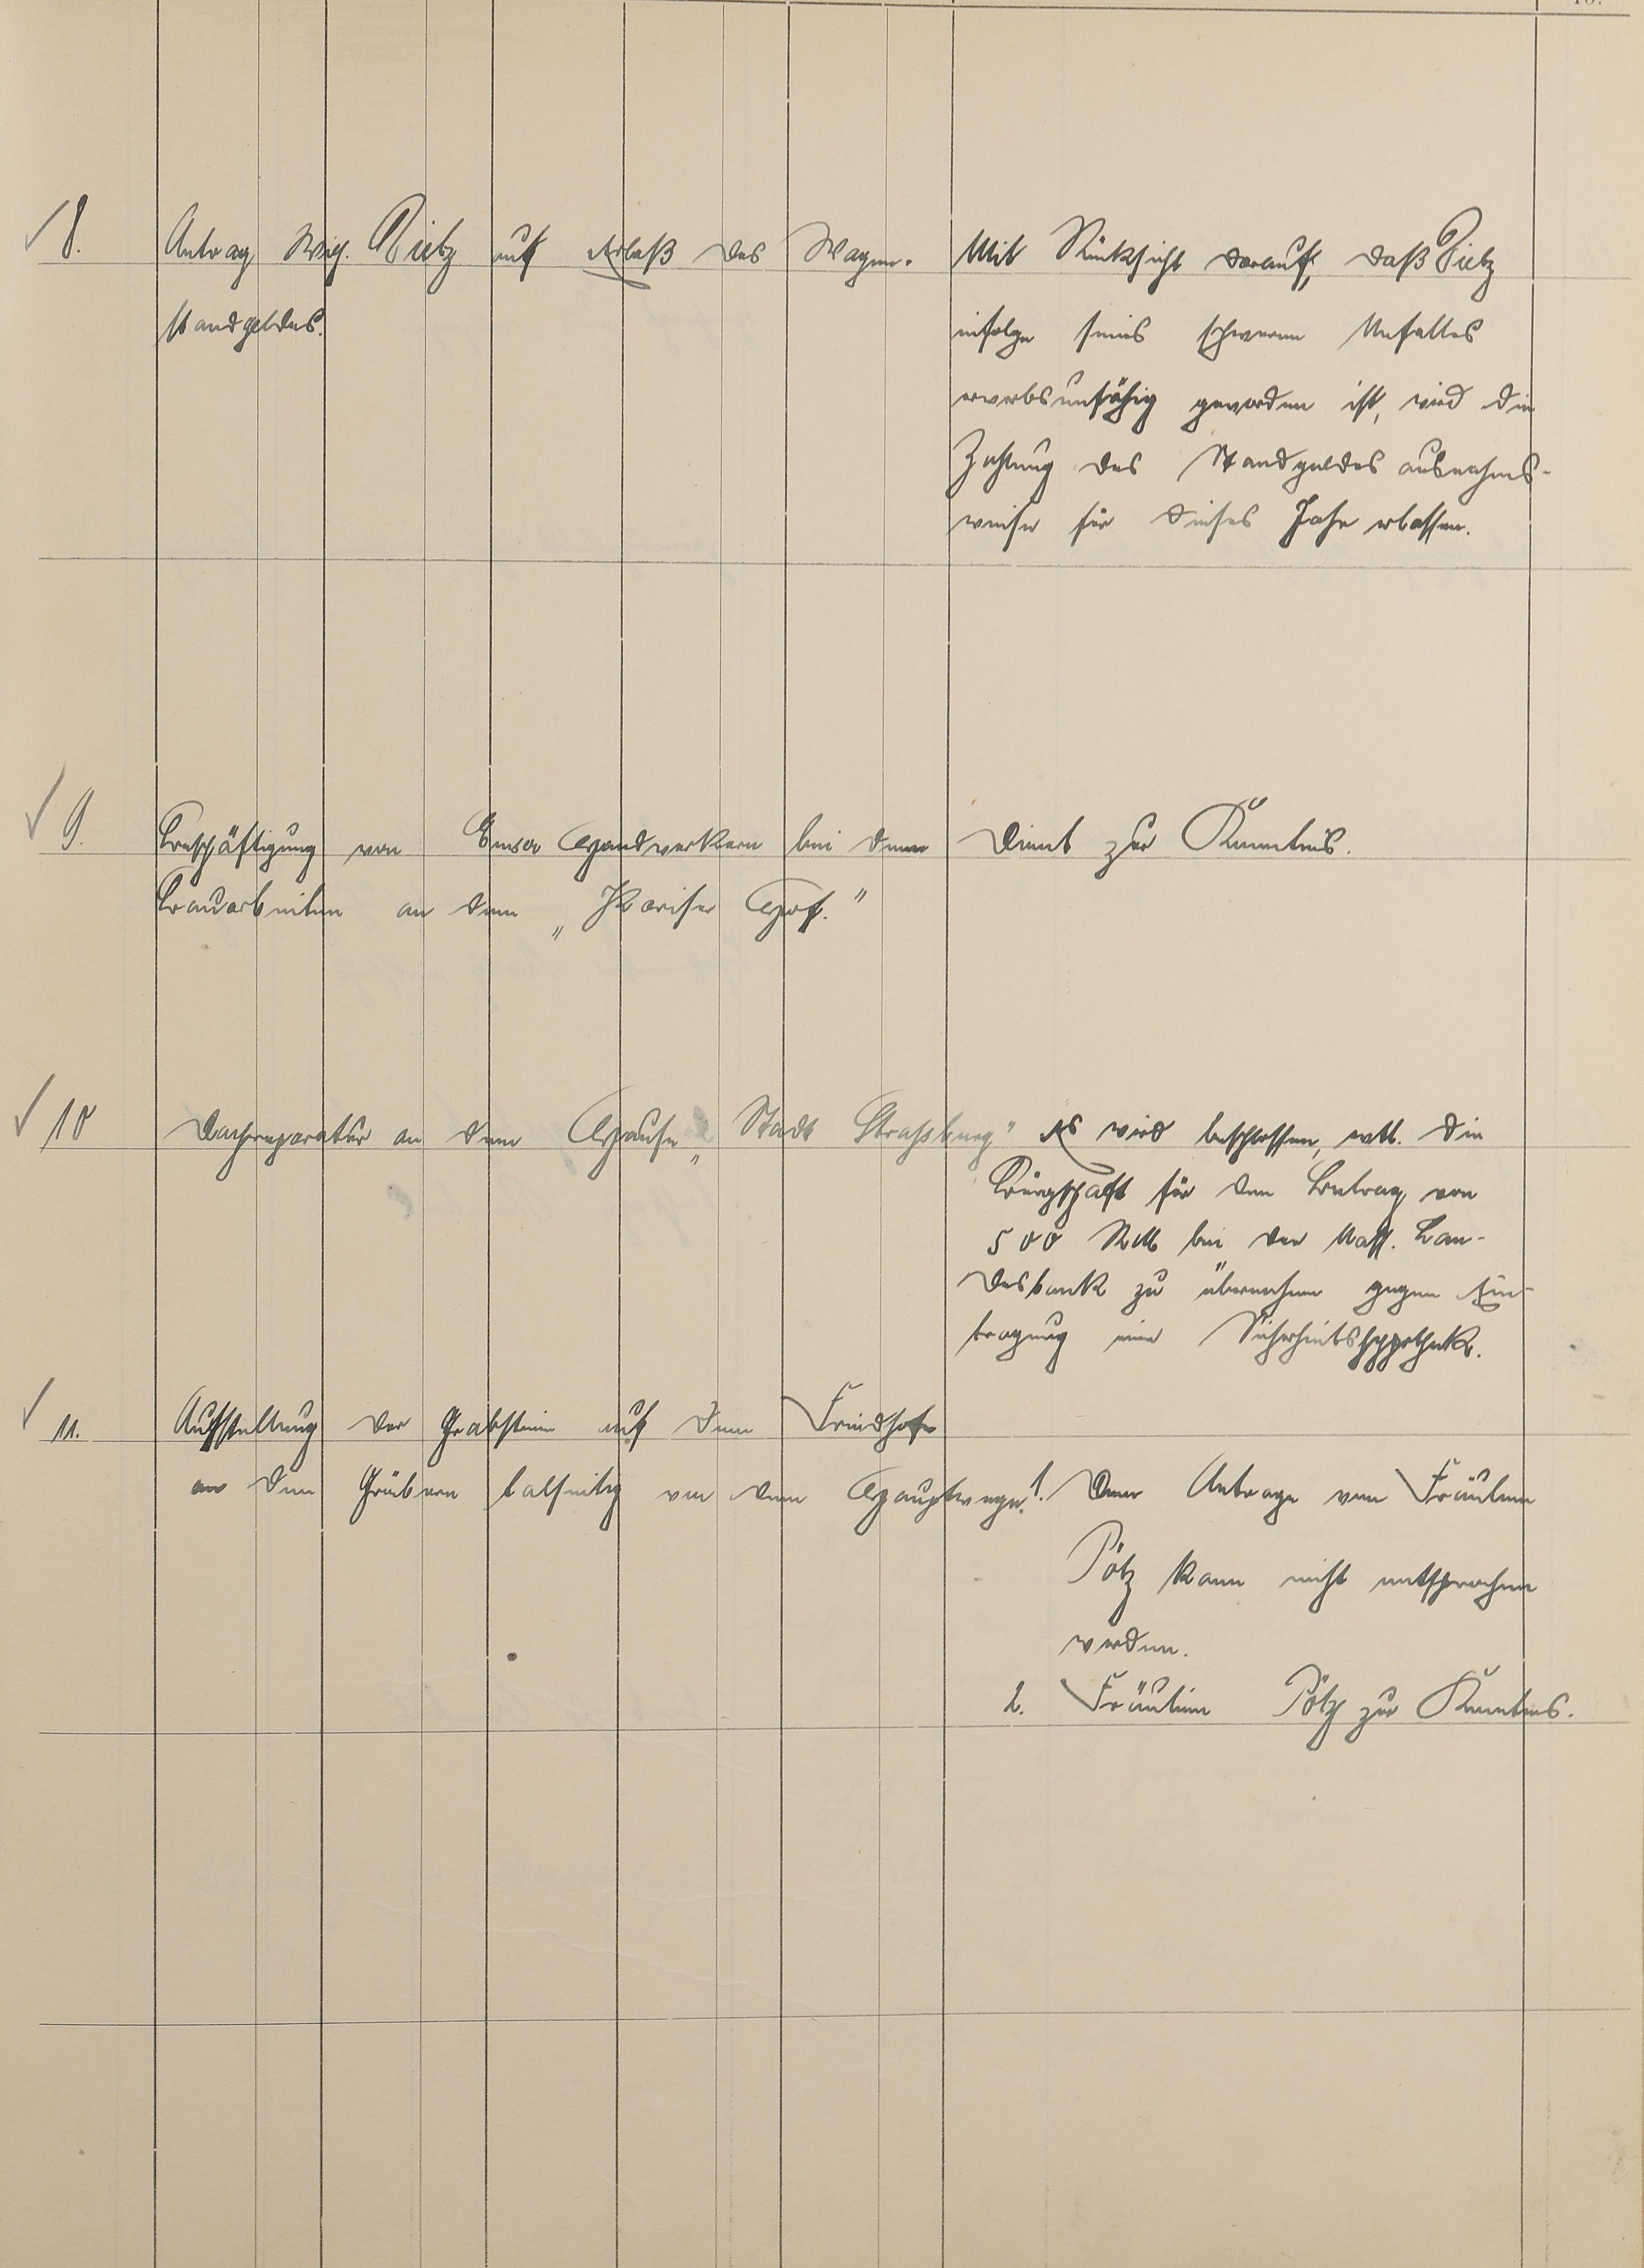 8. Antrag Wig. Pietz auf Erlaß des Wagen-
standgeldes.
Mit Rücksicht darauf, daß Pietz
infolge seines schweren Unfalles
erwerbsunfähig geworden ist, wird die
Zahlung des Standgeldes ausnahms-
weise für dieses Jahr erlassen.
9. Beschäftigung von Emser Handwerkern bei den
Bauarbeiten an dem „ Hof."
Dient zur Kenntnis.
10 Dachreparatur an dem Hause „Stadt Straßburg"
Es wird beschlossen, evtl. die
Bürgschaft für den Betrag von
500 RM bei der Nass. Lan-
desbank zu übernehmen gegen Ein-
tragung einer Sicherheitshypothek.
11. Aufstellung der Grabsteine auf dem Friedhofe
an den Gräbern talseitig von dem Hauptwege.
1. Dem Antrage von Fräulein
Pötz kann nicht entsprochen
werden.
2. Fräulein Pötz zur Kenntnis.